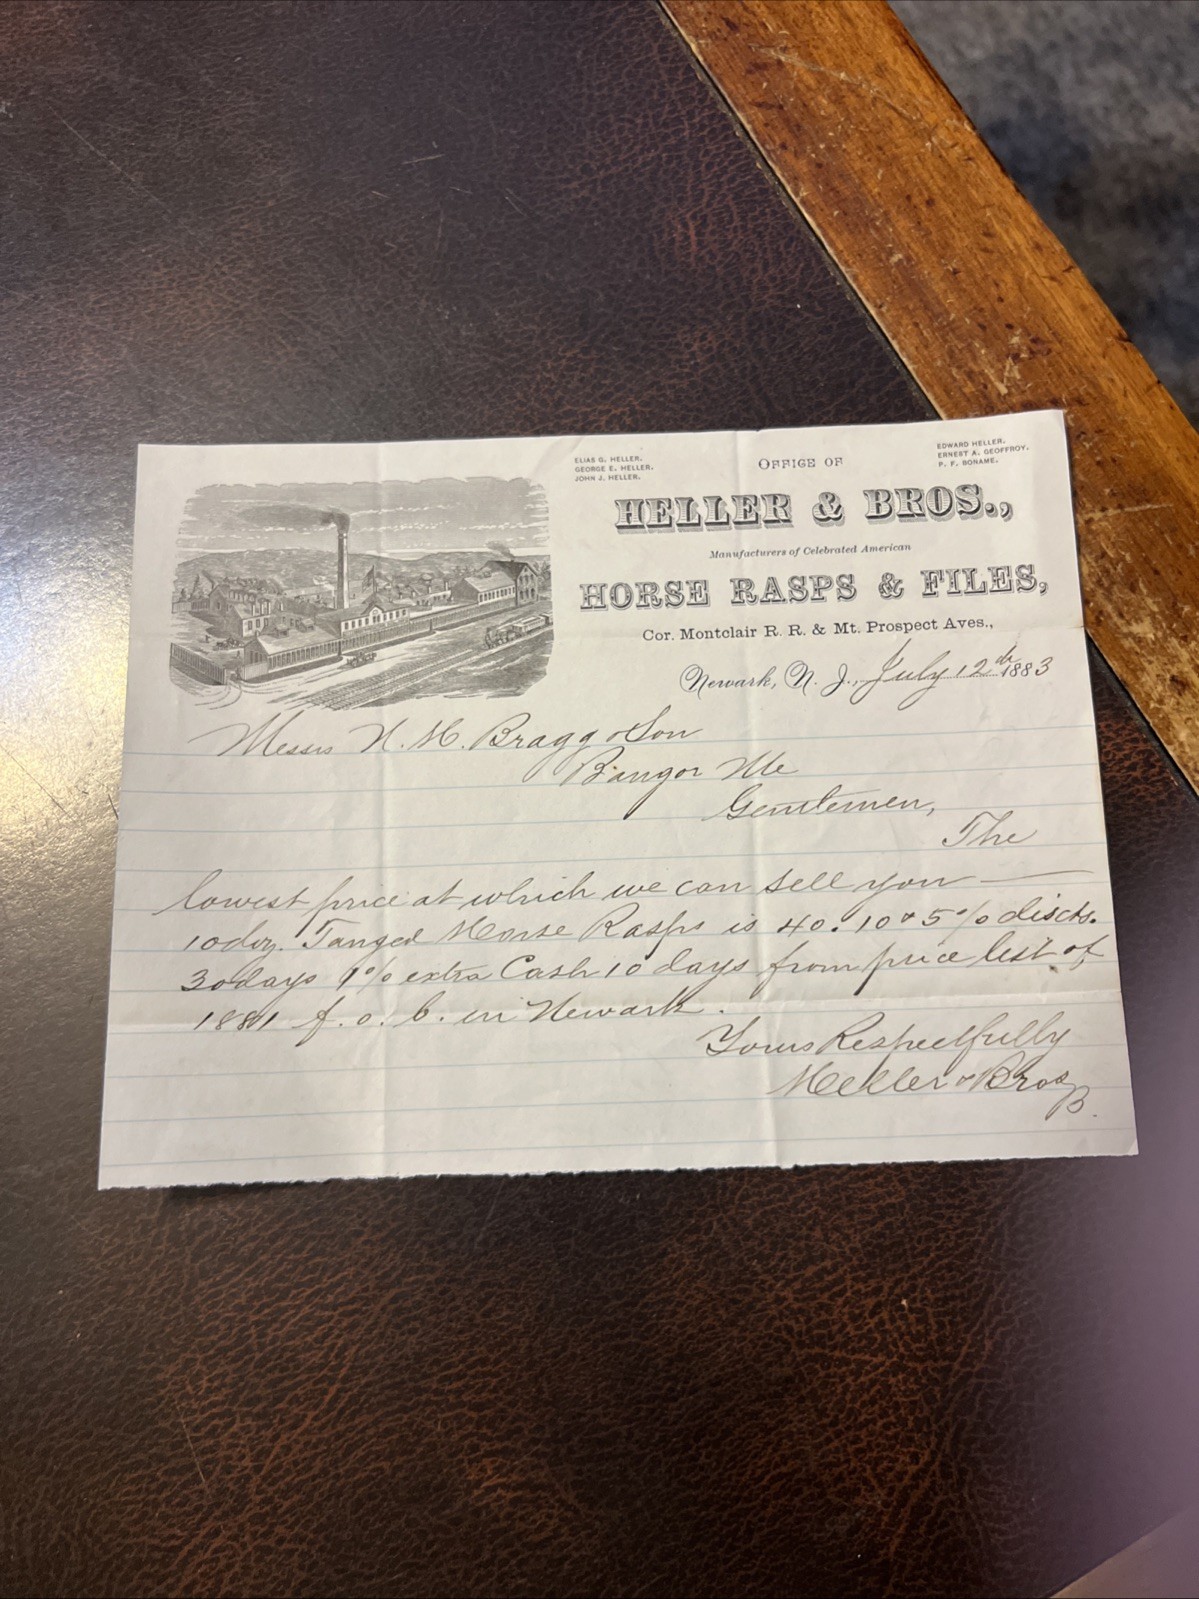 ELIAS G. HELLER.
GEORGE E. HELLER.
JOHN J. HELLER.
OFFICE OF
EDWARD HELLER.
ERNEST A. GEOFFROY.
P. F. BONAME.
HELLER & BROS.,
Manufacturers of Celebrated American
HORSE RASPS & FILES,
Cor. Montclair R. R. & Mt. Prospect Aves.,
Newark, N. J., July 12th 1883
Messrs N. H. Bragg & Son
Bangor Me
Gentlemen,
The
lowest price at which we can sell you —
10 doz. Tanged Horse Rasps is 40. 10 & 5% discts.
30 days 1% extra Cash 10 days from price list of
1881 f. o. b. in Newark.
Yours Respectfully
Heller & Bros
B.